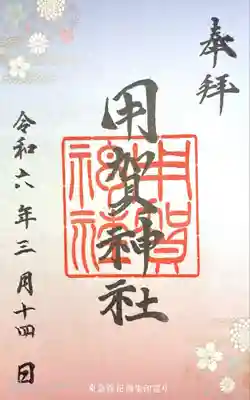 奉拝
用賀神社
用賀神社
令和六年三月十四日